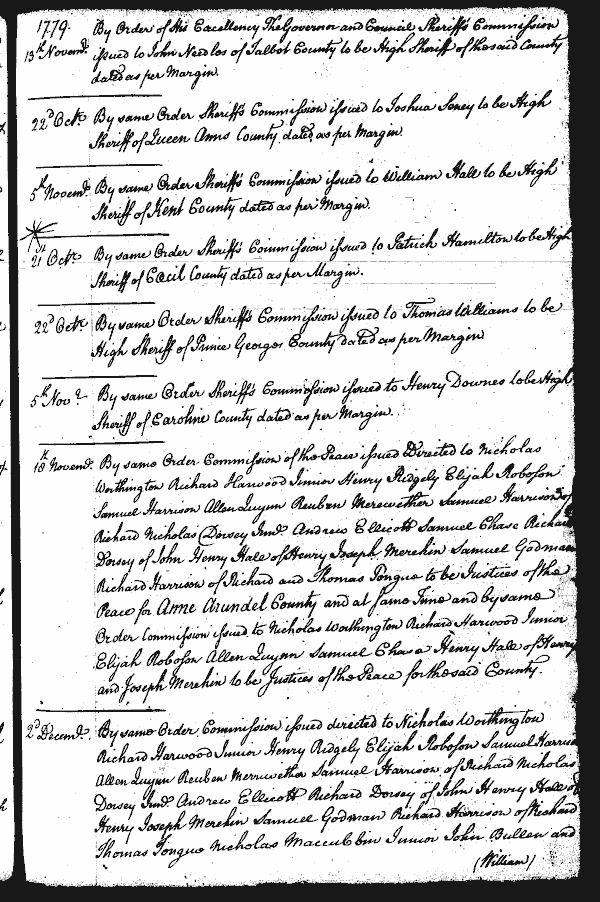 1779. By Order of His Excellency The Governor and Council Sheriff's Commission
13th Novemr. issued to John Needles of Talbot County to be High Sheriff of the said County
dated as per Margin.
22d Octr. By same Order Sheriff's Commission issued to Joshua Seney to be High
Sheriff of Queen Anns County dated as per Margin.
5th Novemr. By same Order Sheriff's Commission issued to William Hall to be High
Sheriff of Kent County dated as per Margin.
21st Octr. By same Order Sheriff's Commission issued to Patrick Hamilton to be High
Sheriff of Cecil County dated as per Margin.
22d Octr. By same Order Sheriff's Commission issued to Thomas Williams to be
High Sheriff of Prince Georges County dated as per Margin
5th Novr. By same Order Sheriff's Commission issued to Henry Downes to be High
Sheriff of Caroline County dated as per Margin.
18th Novemr. By same Order Commission of the Peace issued Directed to Nicholas
Worthington Richard Harwood Junior Henry Ridgely Elijah Roboson
Samuel Harrison Allen Quynn Reuben Merewether Samuel Harrison of
Richard Nicholas Dorsey Junr. Andrew Ellicott Samuel Chase Richard
Dorsey of John Henry Hall of Henry Joseph Merekin Samuel Godman
Richard Harrison of Richard and Thomas Tongue to be Justices of the
Peace for Anne Arundel County and at same Time and by same
Order Commission issued to Nicholas Worthington Richard Harwood Junior
Elijah Roboson Allen Quynn Samuel Chase Henry Hall of Henry
and Joseph Merekin to be Justices of the Peace for the said County.
2d Decemr. By same Order Commission issued directed to Nicholas Worthington
Richard Harwood Junior Henry Ridgely Elijah Roboson Samuel Harrison
Allen Quynn Reuben Merriwether Samuel Harrison of Richard Nicholas
Dorsey Junr. Andrew Ellicott Richard Dorsey of John Henry Hall of
Henry Joseph Merekin Samuel Godman Richard Harrison of Richard
Thomas Tongue Nicholas Maccubbin Junior John Bullen and
(William)